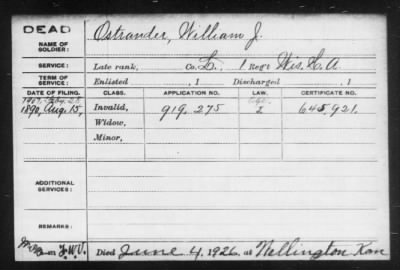 DEAD
NAME OF SOLDIER: Ostrander, William J.
SERVICE: Late rank, Co. L, 1 Reg't Wis. H. A.
TERM OF SERVICE: Enlisted , 1 Discharged , 1
DATE OF FILING. CLASS. APPLICATION NO. LAW. CERTIFICATE NO.
1890, Aug. 15, Invalid, 919.275 645.921.
Widow,
Minor,
ADDITIONAL SERVICES:
REMARKS:
Died June 4, 1926 at Wellington Kan